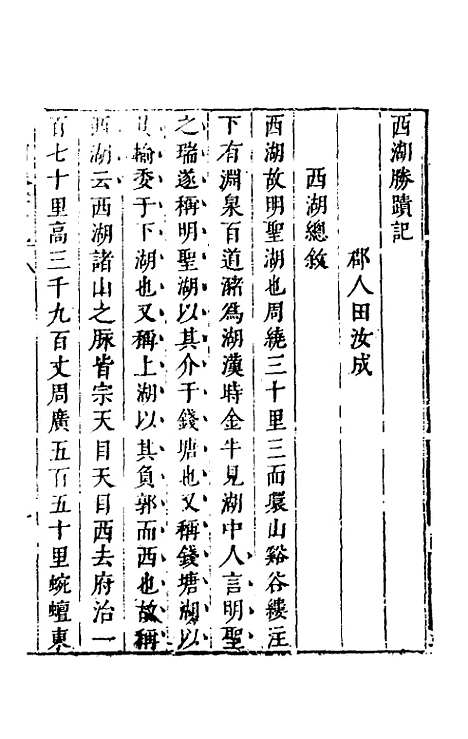 西湖勝蹟記
郡人田汝成
西湖總敘
西湖故明聖湖也周繞三十里三而環山谿谷縷注
下有淵泉百道瀦爲湖漢時金牛見湖中人言明聖
之瑞遂稱明聖湖以其介于錢塘也又稱錢塘湖以
其輸委于下湖也又稱上湖以其負郭而西也故稱
西湖云西湖諸山之脉皆宗天目天目西去府治一
百七十里高三千九百丈周廣五百五十里蜿蟺東